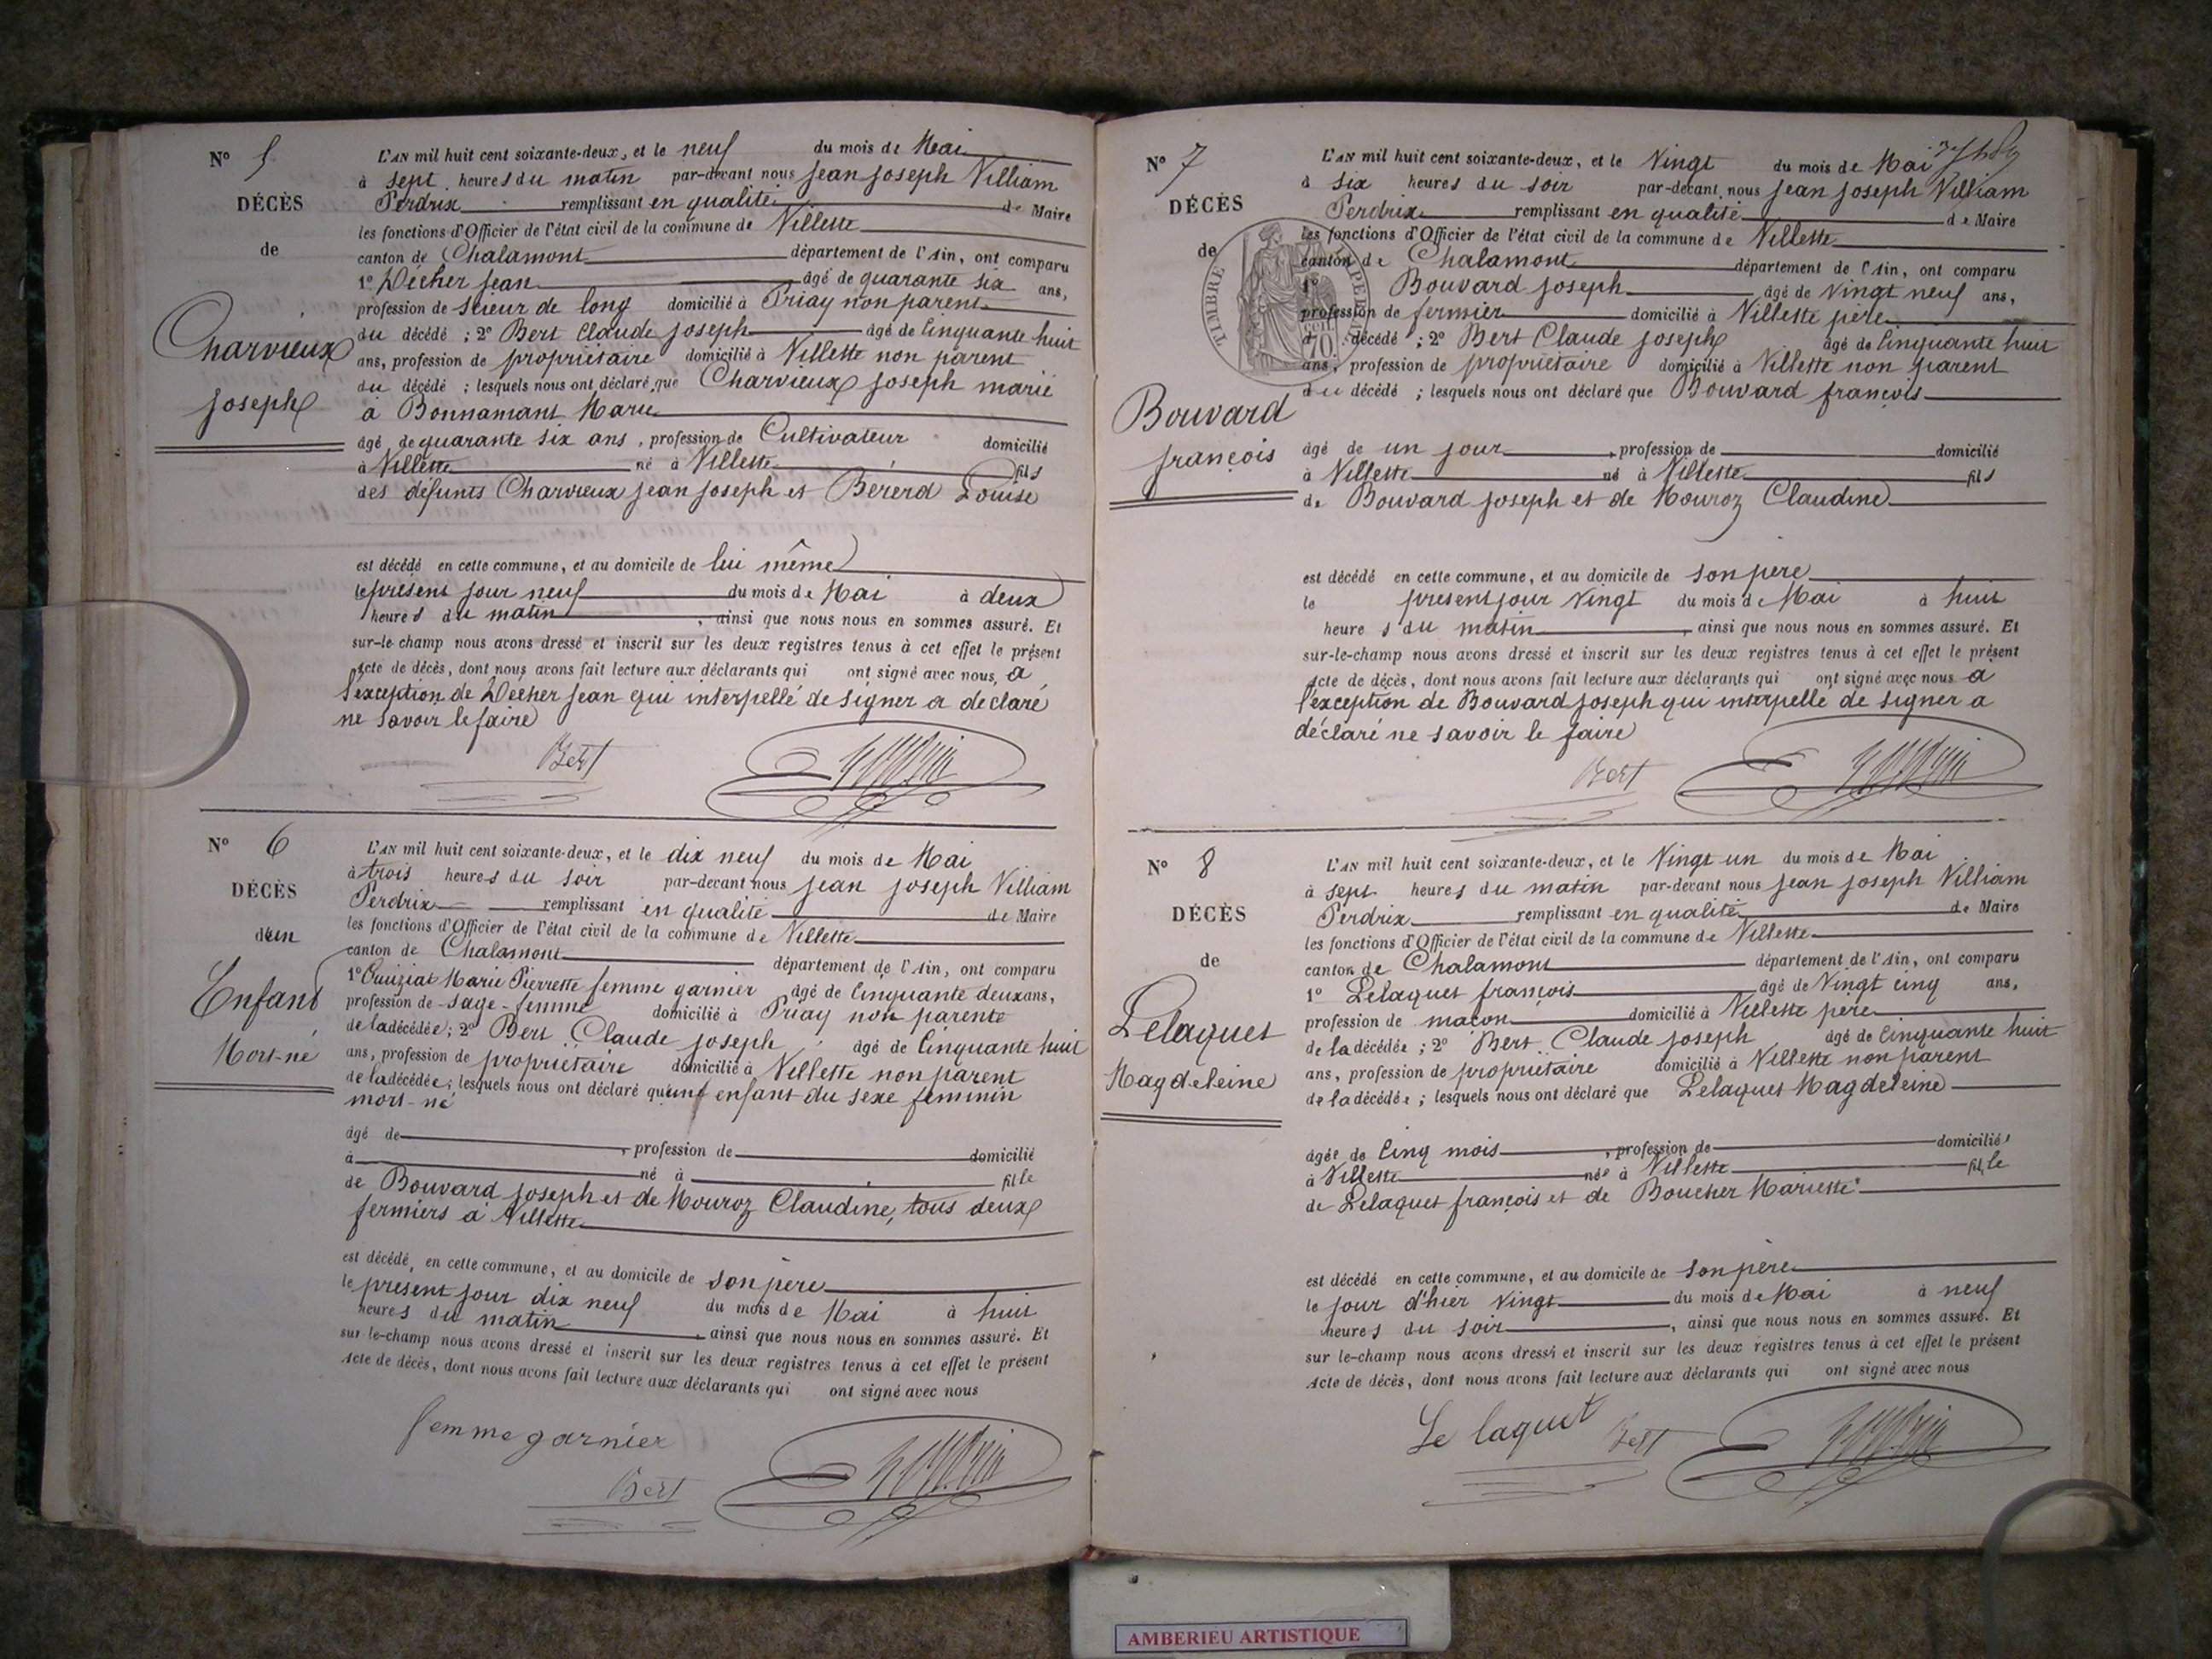 N° 5
DÉCÈS
de
Charvieux
Joseph
L'AN mil huit cent soixante-deux, et le neuf du mois de Mai
à sept heures du matin par-devant nous Jean Joseph Villiam
Perdrix remplissant en qualité de Maire
les fonctions d'Officier de l'état civil de la commune de Villette
canton de Chalamont département de l'Ain, ont comparu
1° Décher Jean âgé de quarante six ans,
profession de scieur de long domicilié à Priay non parent
du décédé ; 2° Bert Claude Joseph âgé de Cinquante huit
ans, profession de propriétaire domicilié à Villette non parent
du décédé ; lesquels nous ont déclaré que Charvieux Joseph marié
à Bonnamant Marie
âgé de quarante six ans, profession de Cultivateur domicilié
à Villette né à Villette fils
des défunts Charvieux Jean Joseph et Bérerd Louise
est décédé en cette commune, et au domicile de lui même
le présent jour neuf du mois de Mai à deux
heures du matin, ainsi que nous nous en sommes assuré. Et
sur-le-champ nous avons dressé et inscrit sur les deux registres tenus à cet effet le présent
Acte de décès, dont nous avons fait lecture aux déclarants qui ont signé avec nous, à
l'exception de Décher Jean qui interpellé de signer a déclaré
ne savoir le faire
Bert
N° 6
DÉCÈS
d'un
Enfant
Mort-né
L'AN mil huit cent soixante-deux, et le dix neuf du mois de Mai
à trois heures du soir par-devant nous Jean Joseph Villiam
Perdrix remplissant en qualité de Maire
les fonctions d'Officier de l'état civil de la commune de Villette
canton de Chalamont département de l'Ain, ont comparu
1° Quiziat Marie Pierrette femme garnier âgé de Cinquante deux ans,
profession de sage-femme domicilié à Priay non parente
de la décédée ; 2° Bert Claude Joseph âgé de Cinquante huit
ans, profession de propriétaire domicilié à Villette non parent
de la décédée ; lesquels nous ont déclaré qu'une enfant du sexe féminin
mort-né
âgé de , profession de domicilié
à né à fille
de Bouvard Joseph et de Mouroz Claudine, tous deux
fermiers à Villette
est décédé en cette commune, et au domicile de son père
le présent jour dix neuf du mois de Mai à huit
heures du matin, ainsi que nous nous en sommes assuré. Et
sur le-champ nous avons dressé et inscrit sur les deux registres tenus à cet effet le présent
Acte de décès, dont nous avons fait lecture aux déclarants qui ont signé avec nous
femme garnier
Bert
N° 7
DÉCÈS
de
TIMBRE
70
Bouvard
françois
L'AN mil huit cent soixante-deux, et le Vingt du mois de Mai
à six heures du soir par-devant nous Jean Joseph Villiam
Perdrix remplissant en qualité de Maire
les fonctions d'Officier de l'état civil de la commune de Villette
canton de Chalamont département de l'Ain, ont comparu
1° Bouvard Joseph âgé de Vingt neuf ans,
profession de fermier domicilié à Villette père
du décédé ; 2° Bert Claude Joseph âgé de Cinquante huit
ans, profession de propriétaire domicilié à Villette non parent
du décédé ; lesquels nous ont déclaré que Bouvard françois
âgé de un jour, profession de domicilié
à Villette né à Villette fils
de Bouvard Joseph et de Mouroz Claudine
est décédé en cette commune, et au domicile de son père
le présent jour Vingt du mois de Mai à huit
heures du matin, ainsi que nous nous en sommes assuré. Et
sur-le-champ nous avons dressé et inscrit sur les deux registres tenus à cet effet le présent
Acte de décès, dont nous avons fait lecture aux déclarants qui ont signé avec nous à
l'exception de Bouvard Joseph qui interpellé de signer a
déclaré ne savoir le faire
Bert
N° 8
DÉCÈS
de
Lelaquet
Magdeleine
L'AN mil huit cent soixante-deux, et le Vingt un du mois de Mai
à sept heures du matin par-devant nous Jean Joseph Villiam
Perdrix remplissant en qualité de Maire
les fonctions d'Officier de l'état civil de la commune de Villette
canton de Chalamont département de l'Ain, ont comparu
1° Lelaquet françois âgé de Vingt cinq ans,
profession de maçon domicilié à Villette père
de la décédée ; 2° Bert Claude Joseph âgé de Cinquante huit
ans, profession de propriétaire domicilié à Villette non parent
de la décédée ; lesquels nous ont déclaré que Lelaquet Magdeleine
âgée de Cinq mois, profession de domiciliée
à Villette née à Villette fille
de Lelaquet françois et de Boucher Mariette
est décédé en cette commune, et au domicile de son père
le jour d'hier Vingt du mois de Mai à neuf
heures du soir, ainsi que nous nous en sommes assuré. Et
sur le-champ nous avons dressé et inscrit sur les deux registres tenus à cet effet le présent
Acte de décès, dont nous avons fait lecture aux déclarants qui ont signé avec nous
Le laquet Bert
AMBERIEU ARTISTIQUE